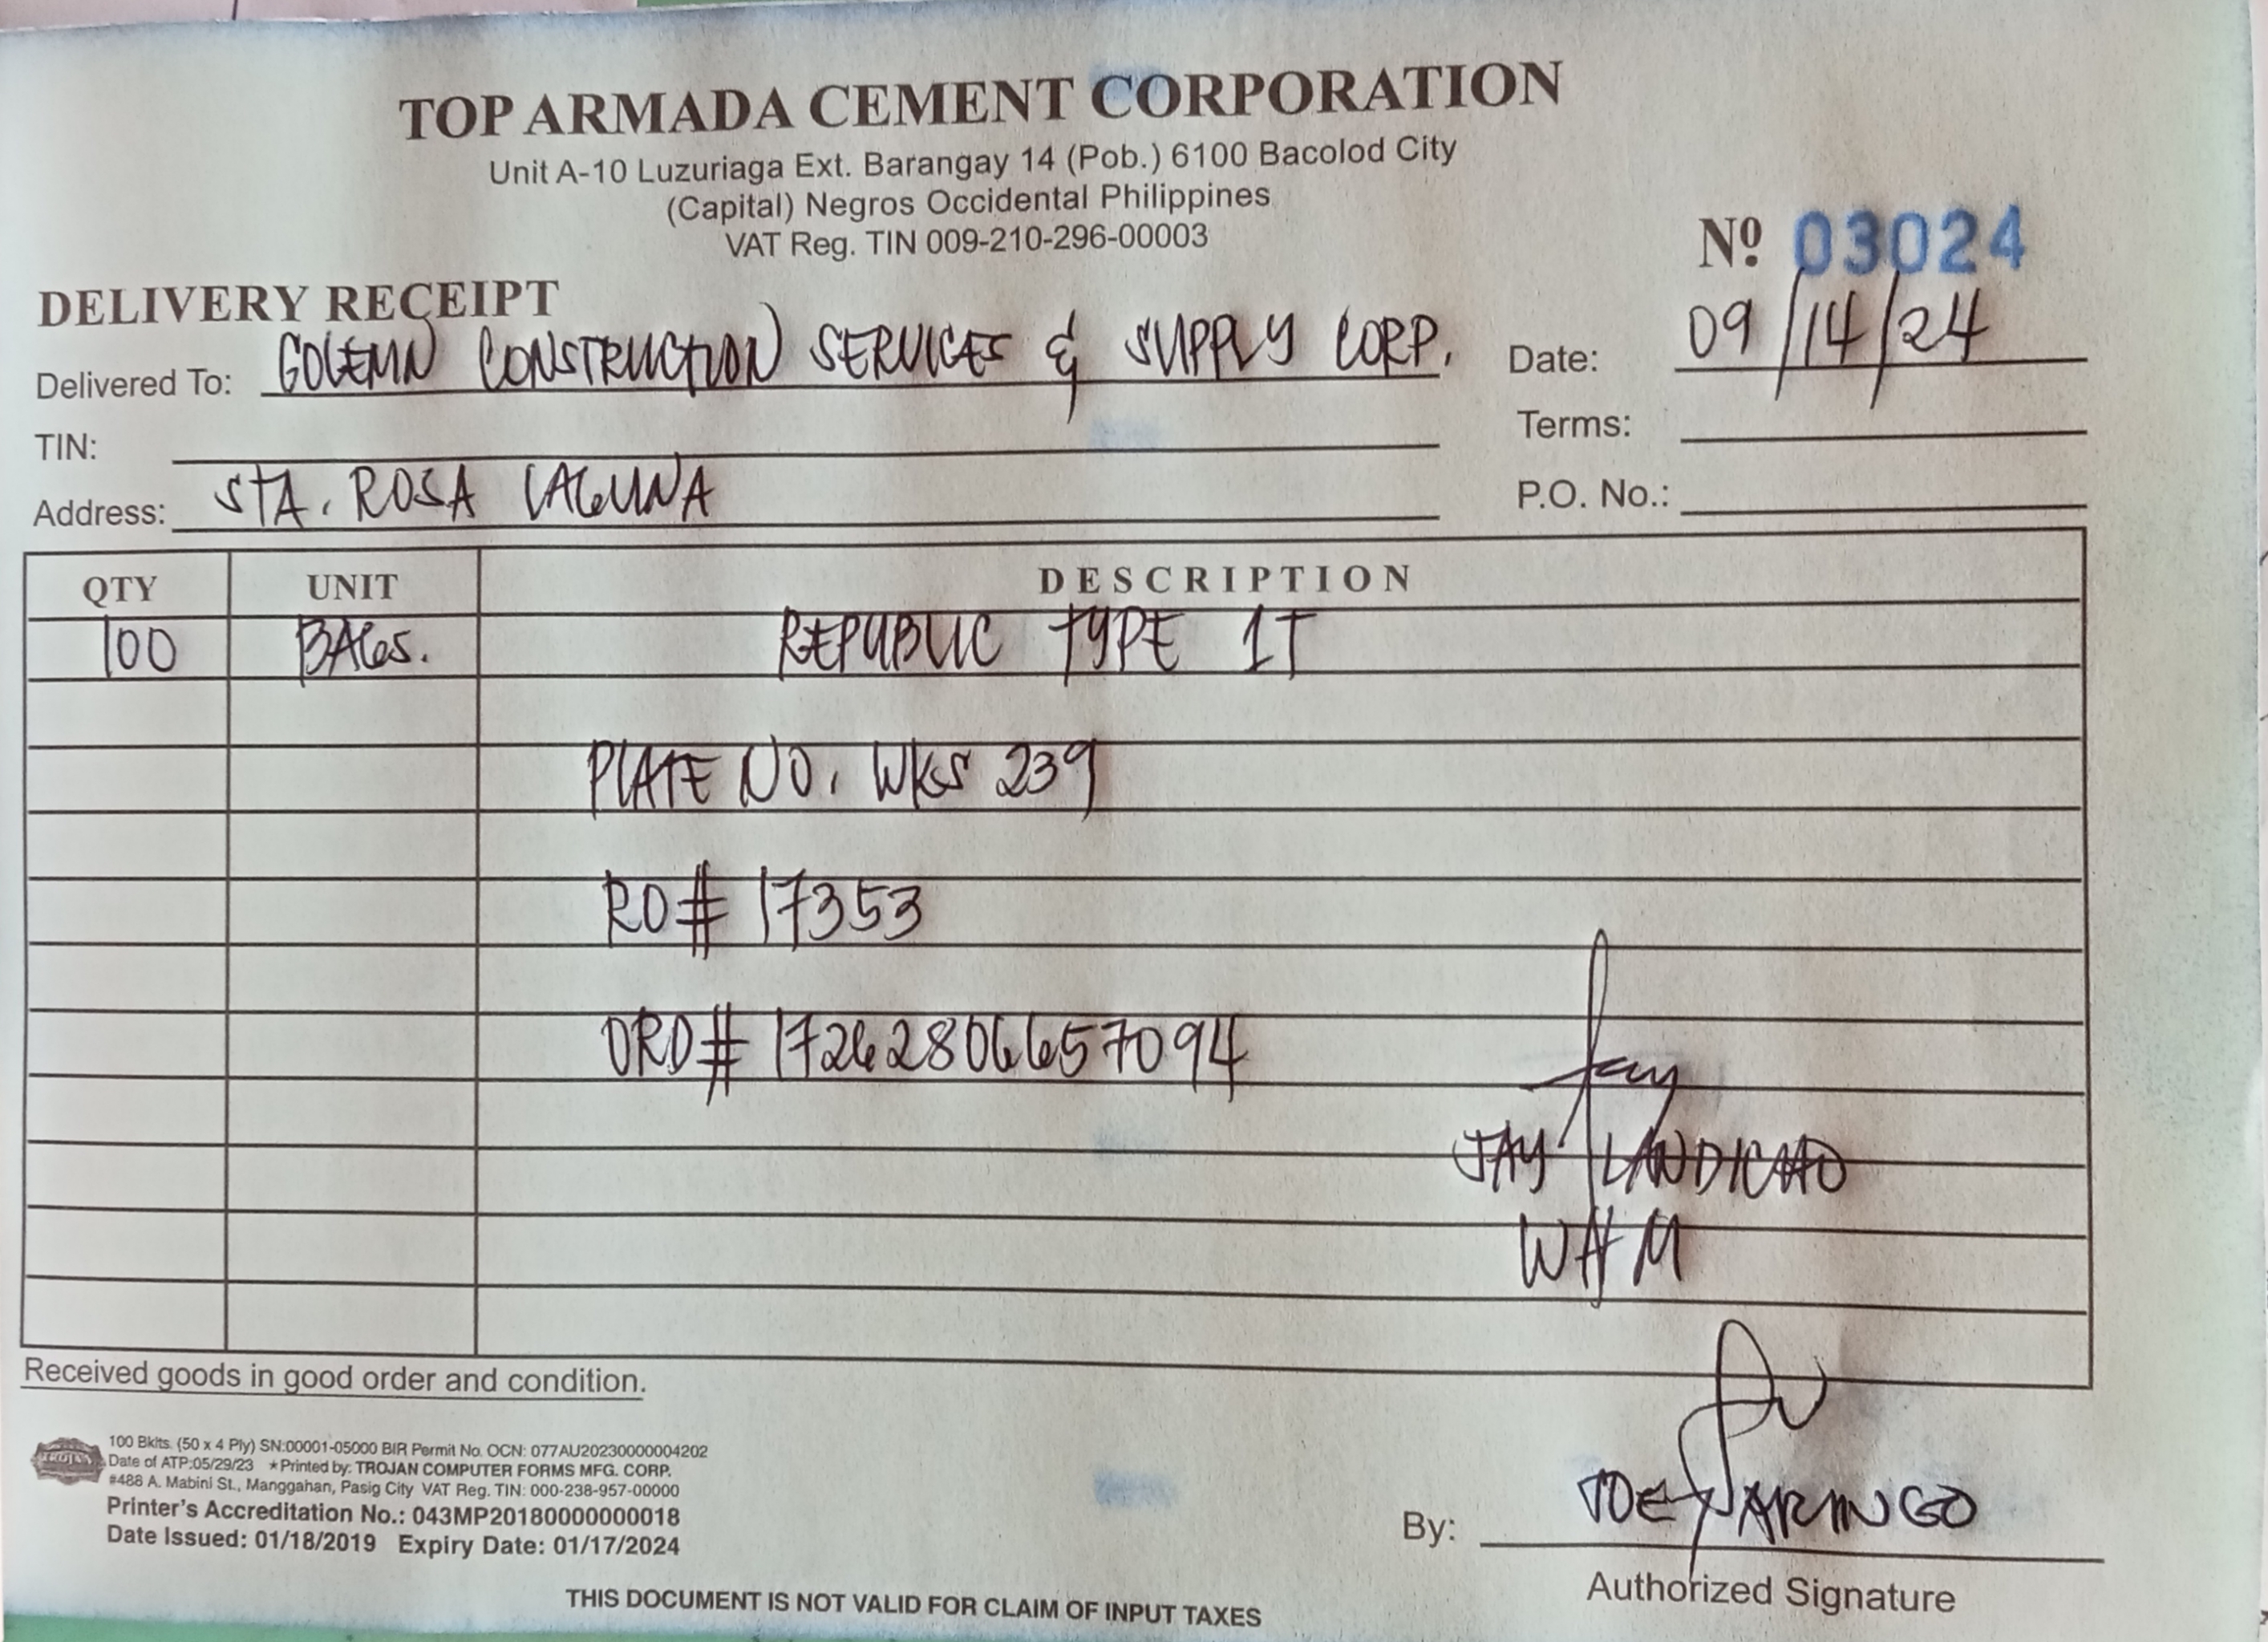 TOP ARMADA CEMENT CORPORATION
Unit A-10 Luzuriaga Ext. Barangay 14 (Pob.) 6100 Bacolod City
(Capital) Negros Occidental Philippines
VAT Reg. TIN 009-210-296-00003
Nº 03024
DELIVERY RECEIPT
Delivered To: GOLEMN CONSTRUCTION SERVICES & SUPPLY CORP.
Date: 09/14/24
TIN:
Terms:
Address: STA. ROSA LAGUNA
P.O. No.:
QTY UNIT DESCRIPTION
100 BAGS. REPUBLIC TYPE 1T
PLATE NO. WKS 239
RO# 17353
ORD# 1726280665 7094
Jay
JAY LANDICHO
WHM
Received goods in good order and condition.
TROJAN
100 Bklts. (50 x 4 Ply) SN:00001-05000 BIR Permit No. OCN: 077AU20230000004202
Date of ATP:05/29/23 ★Printed by: TROJAN COMPUTER FORMS MFG. CORP.
#488 A. Mabini St., Manggahan, Pasig City VAT Reg. TIN: 000-238-957-00000
Printer's Accreditation No.: 043MP20180000000018
Date Issued: 01/18/2019 Expiry Date: 01/17/2024
By: JOE
Authorized Signature
THIS DOCUMENT IS NOT VALID FOR CLAIM OF INPUT TAXES